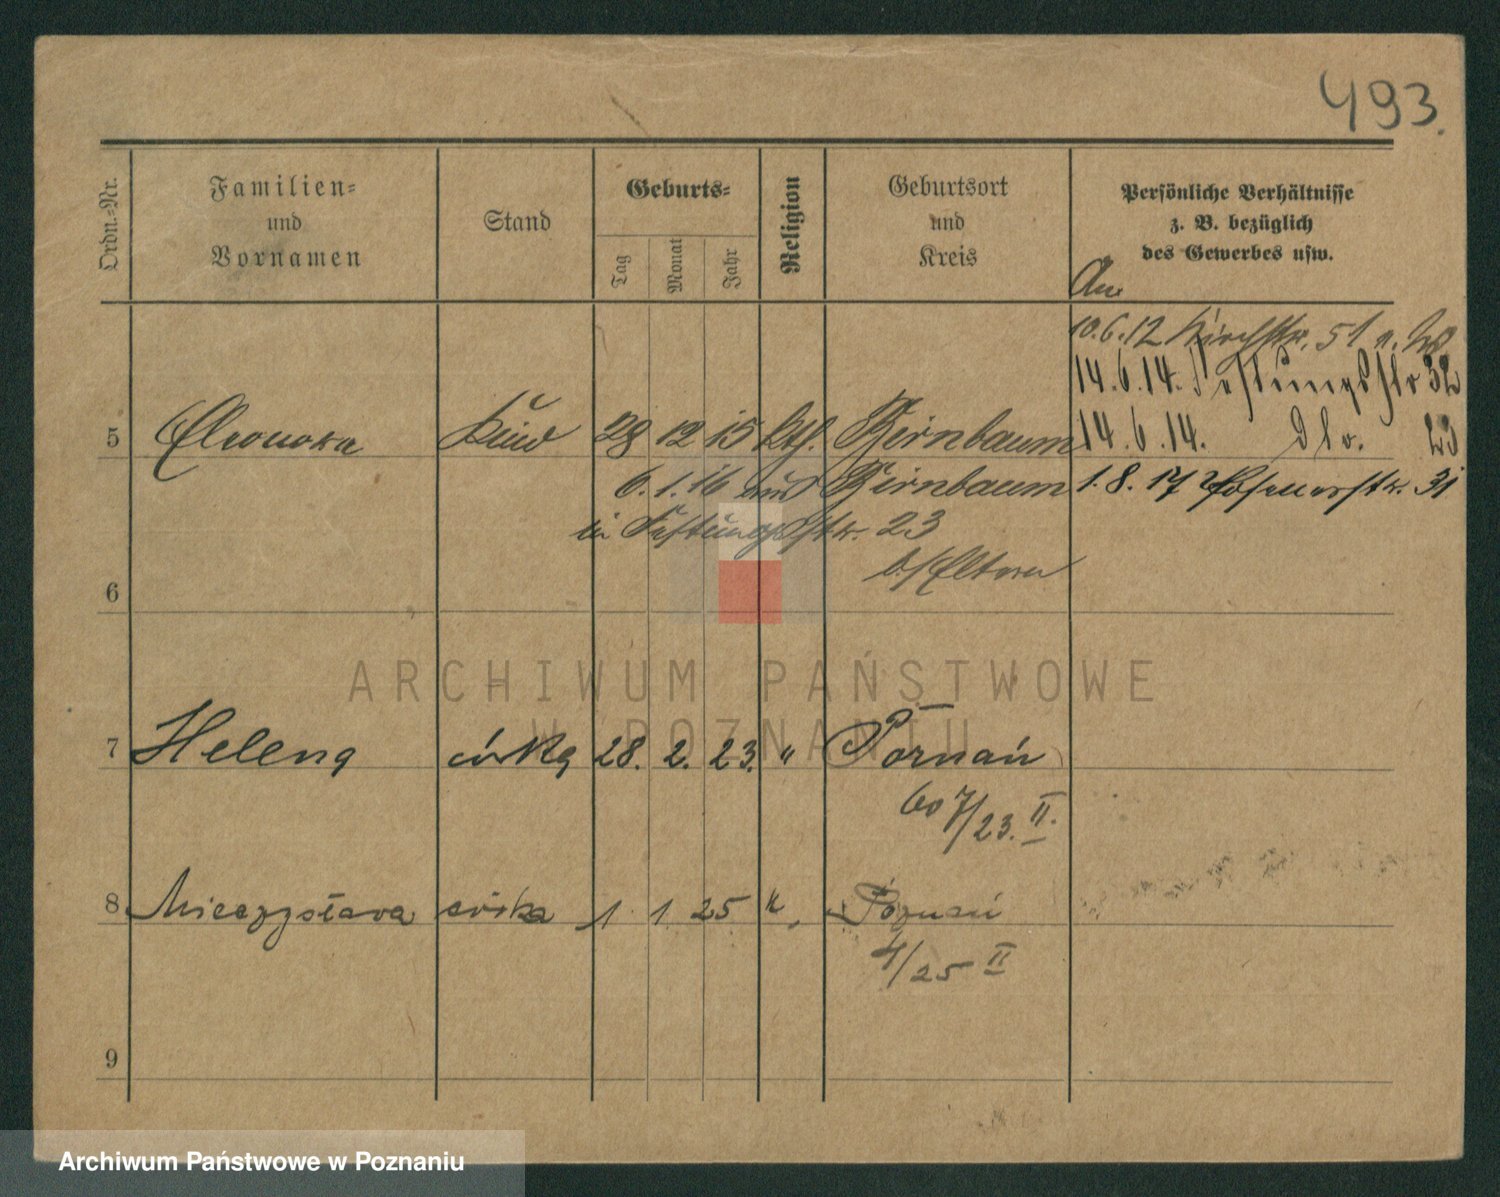 493.
Ordn.-Nr.
Familien-
und
Vornamen
Stand
Geburts-
Tag
Monat
Jahr
Religion
Geburtsort
und
Kreis
Persönliche Verhältnisse
z. B. bezüglich
des Gewerbes usw.
10.6.12 Kirchstr. 51
14.6.14. Festungsstr 32
5 Eleonora Kind 28 12 15 kth. Birnbaum 14.6.14. dto. 23
6.1.16 aus Birnbaum 1.8.17 Posenerstr. 31
in Festungsstr. 23
b./Eltern
6
ARCHIWUM PAŃSTWOWE
W POZNANIU
7 Helena córka 28. 2. 23. " Poznań
60 7/23. II.
8 Mieczysława córka 1 1. 25 k. Poznań
4/25 II
9
Archiwum Państwowe w Poznaniu